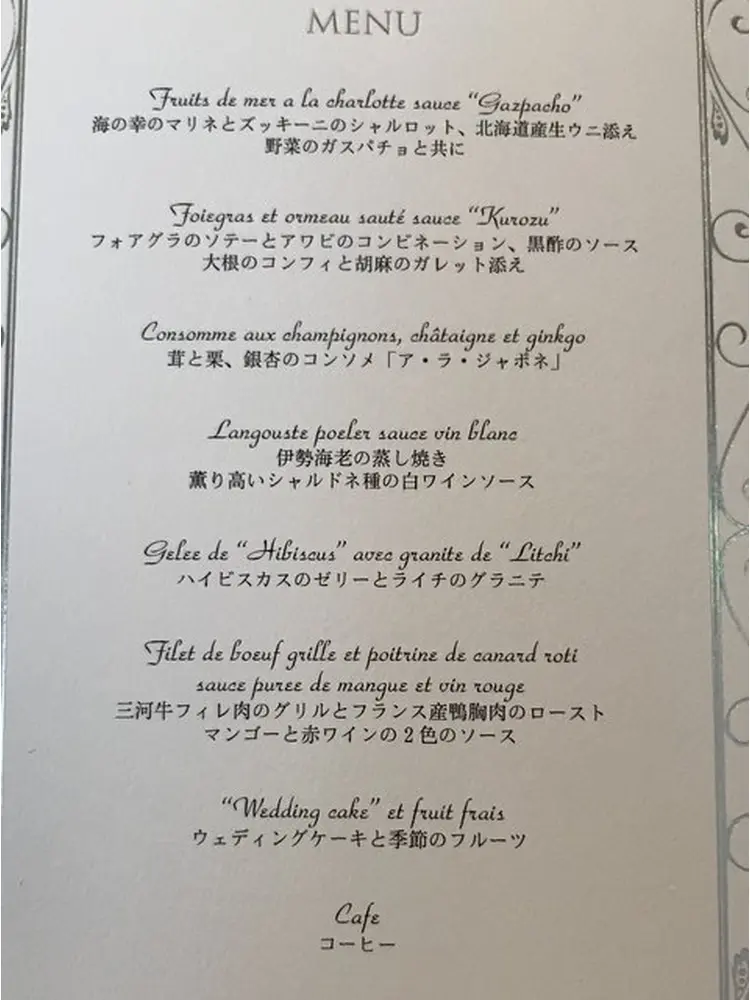 MENU
Fruits de mer a la charlotte sauce “Gazpacho”
海の幸のマリネとズッキーニのシャルロット、北海道産生ウニ添え
野菜のガスパチョと共に
Foiegras et ormeau sauté sauce “Kurozu”
フォアグラのソテーとアワビのコンビネーション、黒酢のソース
大根のコンフィと胡麻のガレット添え
Consomme aux champignons, châtaigne et ginkgo
茸と栗、銀杏のコンソメ「ア・ラ・ジャポネ」
Langouste poeler sauce vin blanc
伊勢海老の蒸し焼き
薫り高いシャルドネ種の白ワインソース
Gelee de “Hibiscus” avec granite de “Litchi”
ハイビスカスのゼリーとライチのグラニテ
Filet de boeuf grille et poitrine de canard roti
sauce puree de mangue et vin rouge
三河牛フィレ肉のグリルとフランス産鴨胸肉のロースト
マンゴーと赤ワインの2色のソース
“Wedding cake” et fruit frais
ウェディングケーキと季節のフルーツ
Cafe
コーヒー